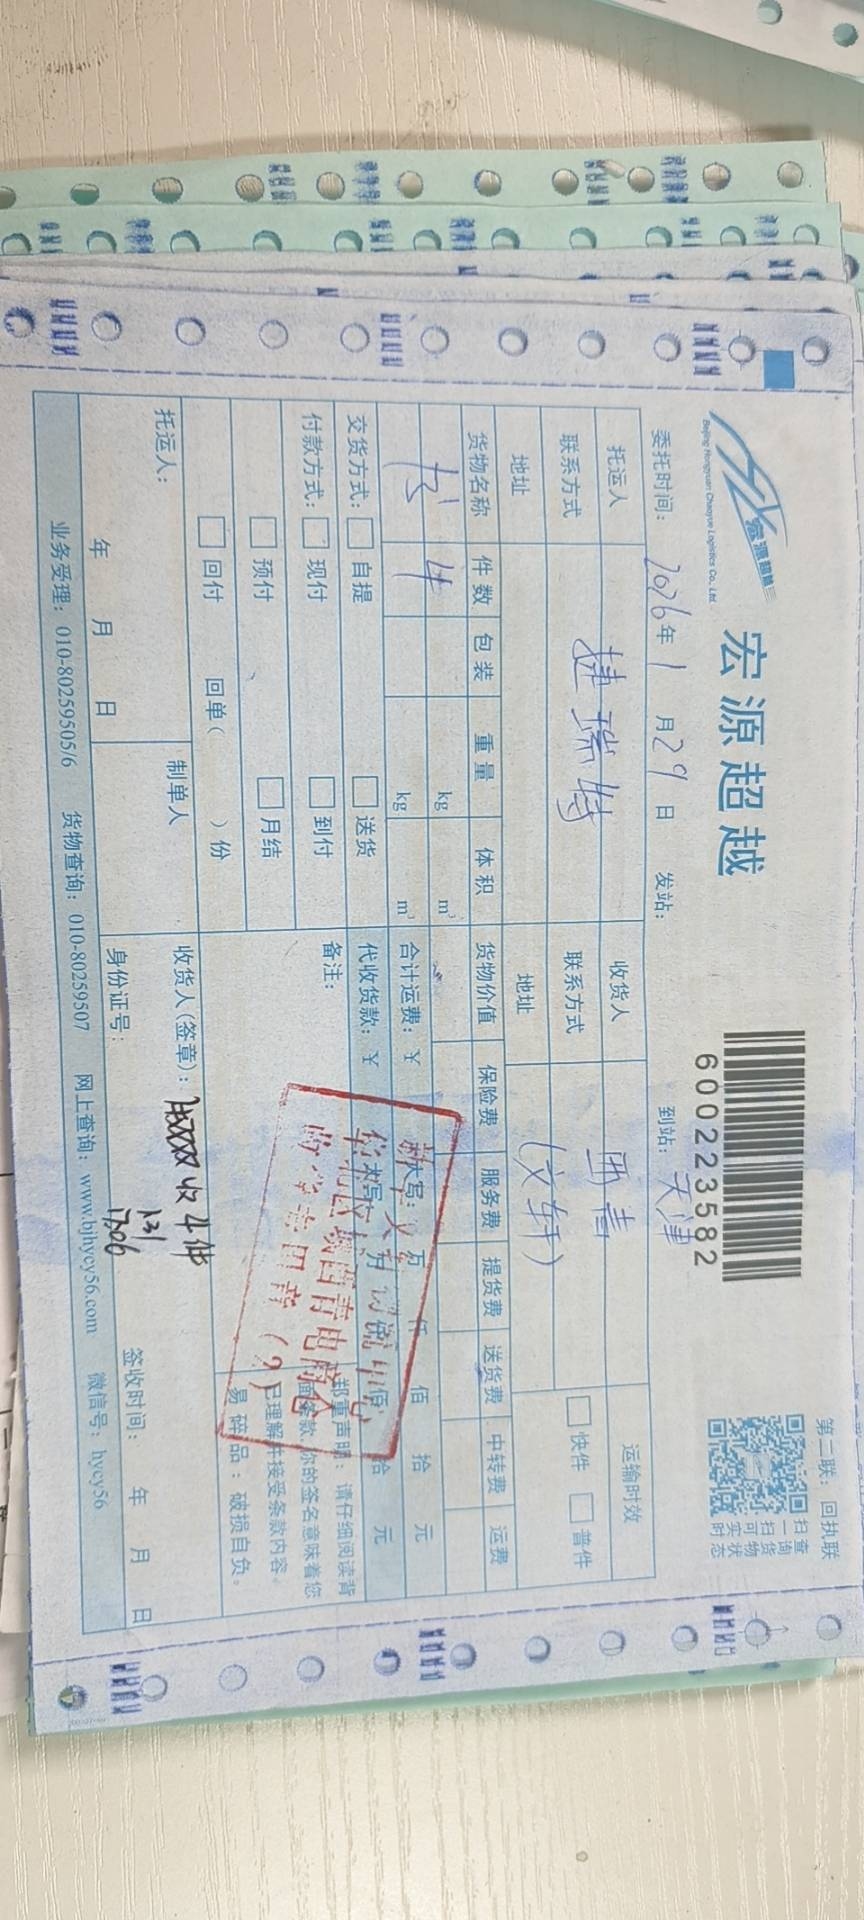 第二联：回执联
宏源超越
Beijing Hongyuan Chaoyue Logistics Co., Ltd
宏源超越
600223582
扫一扫可实时
查询货物状态
委托时间：2026年1月29日 发站： 到站：天津
托运人 捷瑞特 收货人 西青 运输时效
联系方式 联系方式 （文轩） 快件 普件
地址 地址
货物名称 件数 包装 重量 体积 货物价值 保险费 服务费 提货费 送货费 中转费 运费
4 kg m³
书 kg m³ 合计运费：¥ 大写： 万 仟 佰 拾 元
交货方式： 自提 送货 代收货款：¥ 大写： 万 仟 佰 拾 元
付款方式： 现付 到付 备注：
预付 月结
回付 回单（ ）份
郑重声明：请仔细阅读背
面条款，你的签名意味着您
已理解并接受条款内容。
易碎品：破损自负。
华北区域西青电商仓
收货专用章（2）
托运人： 制单人 收货人（签章）： 收4件
1.31
17:06
年 月 日 身份证号： 签收时间： 年 月 日
业务受理：010-80259505/6 货物查询：010-80259507 网上查询：www.bjhycy56.com 微信号：hycy56